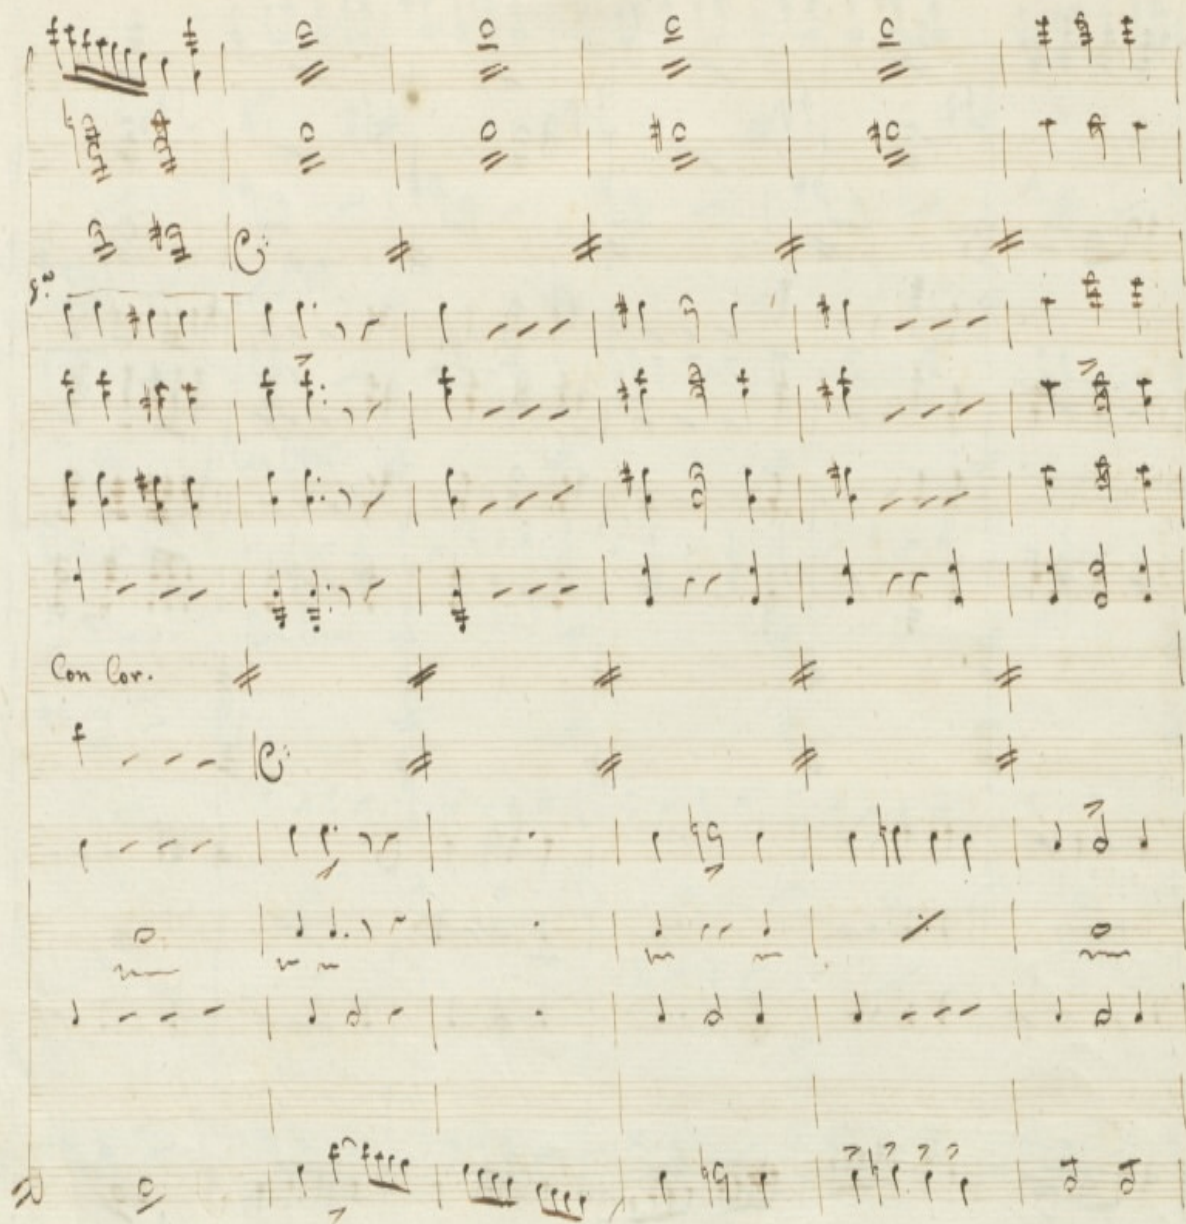 8ª
Con Cor.